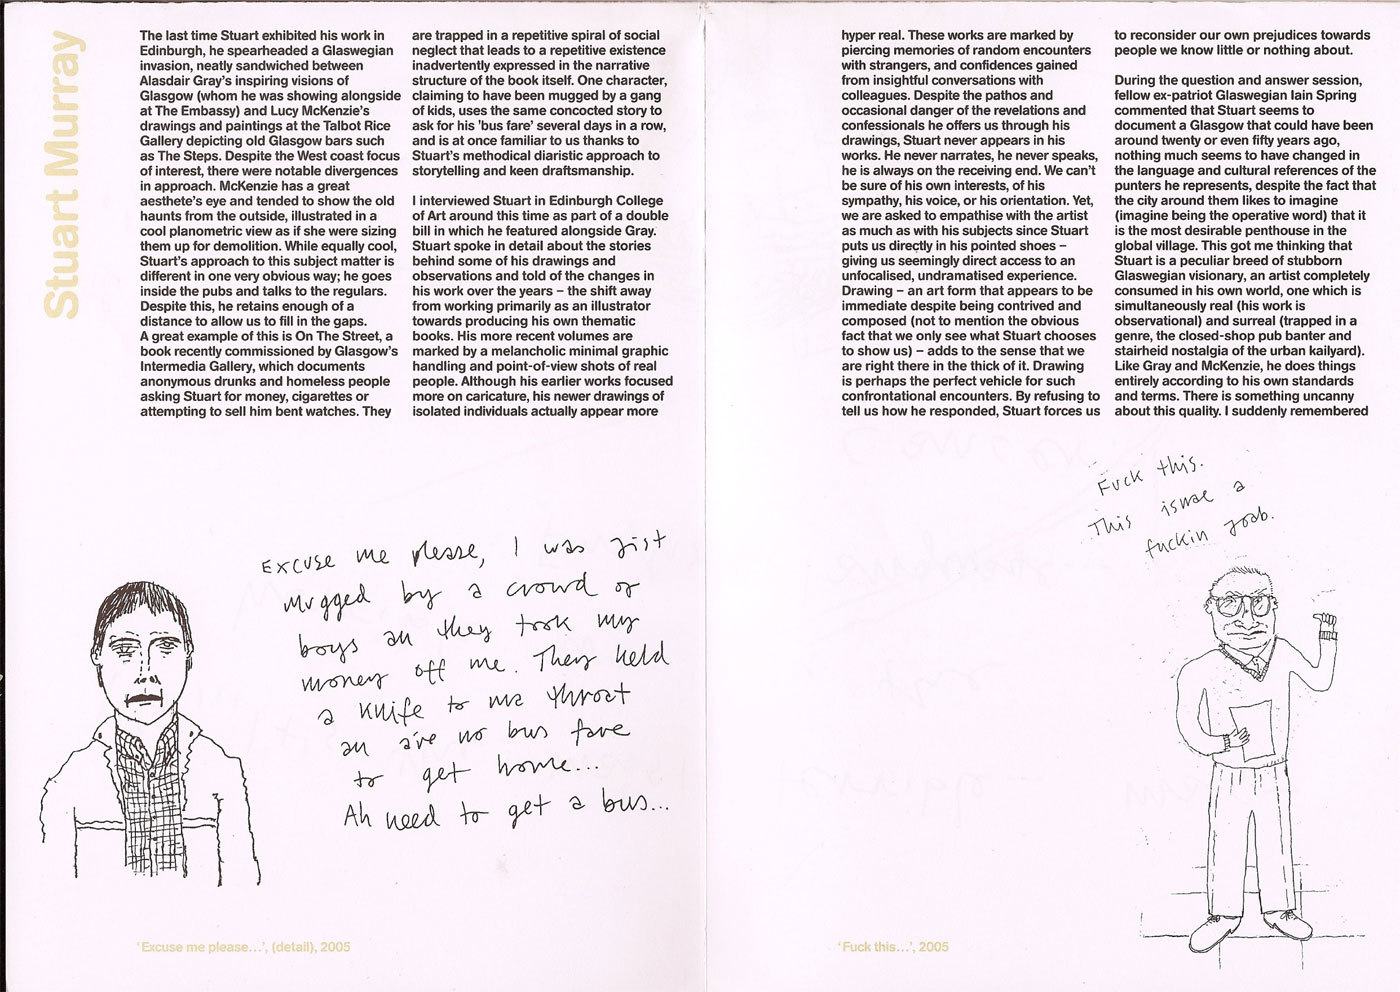 Stuart Murray
The last time Stuart exhibited his work in
Edinburgh, he spearheaded a Glaswegian
invasion, neatly sandwiched between
Alasdair Gray's inspiring visions of
Glasgow (whom he was showing alongside
at The Embassy) and Lucy McKenzie's
drawings and paintings at the Talbot Rice
Gallery depicting old Glasgow bars such
as The Steps. Despite the West coast focus
of interest, there were notable divergences
in approach. McKenzie has a great
aesthete's eye and tended to show the old
haunts from the outside, illustrated in a
cool planometric view as if she were sizing
them up for demolition. While equally cool,
Stuart's approach to this subject matter is
different in one very obvious way; he goes
inside the pubs and talks to the regulars.
Despite this, he retains enough of a
distance to allow us to fill in the gaps.
A great example of this is On The Street, a
book recently commissioned by Glasgow's
Intermedia Gallery, which documents
anonymous drunks and homeless people
asking Stuart for money, cigarettes or
attempting to sell him bent watches. They
are trapped in a repetitive spiral of social
neglect that leads to a repetitive existence
inadvertently expressed in the narrative
structure of the book itself. One character,
claiming to have been mugged by a gang
of kids, uses the same concocted story to
ask for his 'bus fare' several days in a row,
and is at once familiar to us thanks to
Stuart's methodical diaristic approach to
storytelling and keen draftsmanship.
I interviewed Stuart in Edinburgh College
of Art around this time as part of a double
bill in which he featured alongside Gray.
Stuart spoke in detail about the stories
behind some of his drawings and
observations and told of the changes in
his work over the years – the shift away
from working primarily as an illustrator
towards producing his own thematic
books. His more recent volumes are
marked by a melancholic minimal graphic
handling and point-of-view shots of real
people. Although his earlier works focused
more on caricature, his newer drawings of
isolated individuals actually appear more
Excuse me please, I was jist
mugged by a crowd of
boys an they took my
money off me. They held
a knife to ma throat
an a've no bus fare
to get home...
Ah need to get a bus...
'Excuse me please...', (detail), 2005
hyper real. These works are marked by
piercing memories of random encounters
with strangers, and confidences gained
from insightful conversations with
colleagues. Despite the pathos and
occasional danger of the revelations and
confessionals he offers us through his
drawings, Stuart never appears in his
works. He never narrates, he never speaks,
he is always on the receiving end. We can't
be sure of his own interests, of his
sympathy, his voice, or his orientation. Yet,
we are asked to empathise with the artist
as much as with his subjects since Stuart
puts us directly in his pointed shoes –
giving us seemingly direct access to an
unfocalised, undramatised experience.
Drawing – an art form that appears to be
immediate despite being contrived and
composed (not to mention the obvious
fact that we only see what Stuart chooses
to show us) – adds to the sense that we
are right there in the thick of it. Drawing
is perhaps the perfect vehicle for such
confrontational encounters. By refusing to
tell us how he responded, Stuart forces us
to reconsider our own prejudices towards
people we know little or nothing about.
During the question and answer session,
fellow ex-patriot Glaswegian Iain Spring
commented that Stuart seems to
document a Glasgow that could have been
around twenty or even fifty years ago,
nothing much seems to have changed in
the language and cultural references of the
punters he represents, despite the fact that
the city around them likes to imagine
(imagine being the operative word) that it
is the most desirable penthouse in the
global village. This got me thinking that
Stuart is a peculiar breed of stubborn
Glaswegian visionary, an artist completely
consumed in his own world, one which is
simultaneously real (his work is
observational) and surreal (trapped in a
genre, the closed-shop pub banter and
stairheid nostalgia of the urban kailyard).
Like Gray and McKenzie, he does things
entirely according to his own standards
and terms. There is something uncanny
about this quality. I suddenly remembered
Fuck this.
This isnae a
fuckin joab.
'Fuck this...', 2005